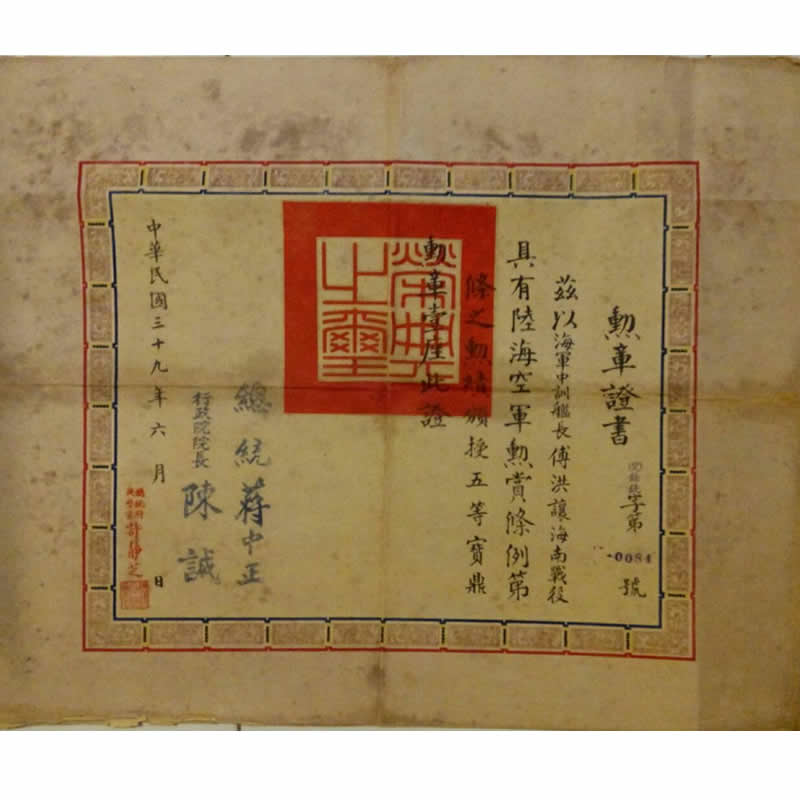 勳章證書
字第
-0084
號
茲以海軍中訓艦長傅洪讓海南戰役
具有陸海空軍勳賞條例第
條之勳績頒授五等寶鼎
勳章壹座此證
榮典之璽
總統 蔣中正
行政院院長 陳誠
中華民國三十九年六月 日
總統府
許靜芝